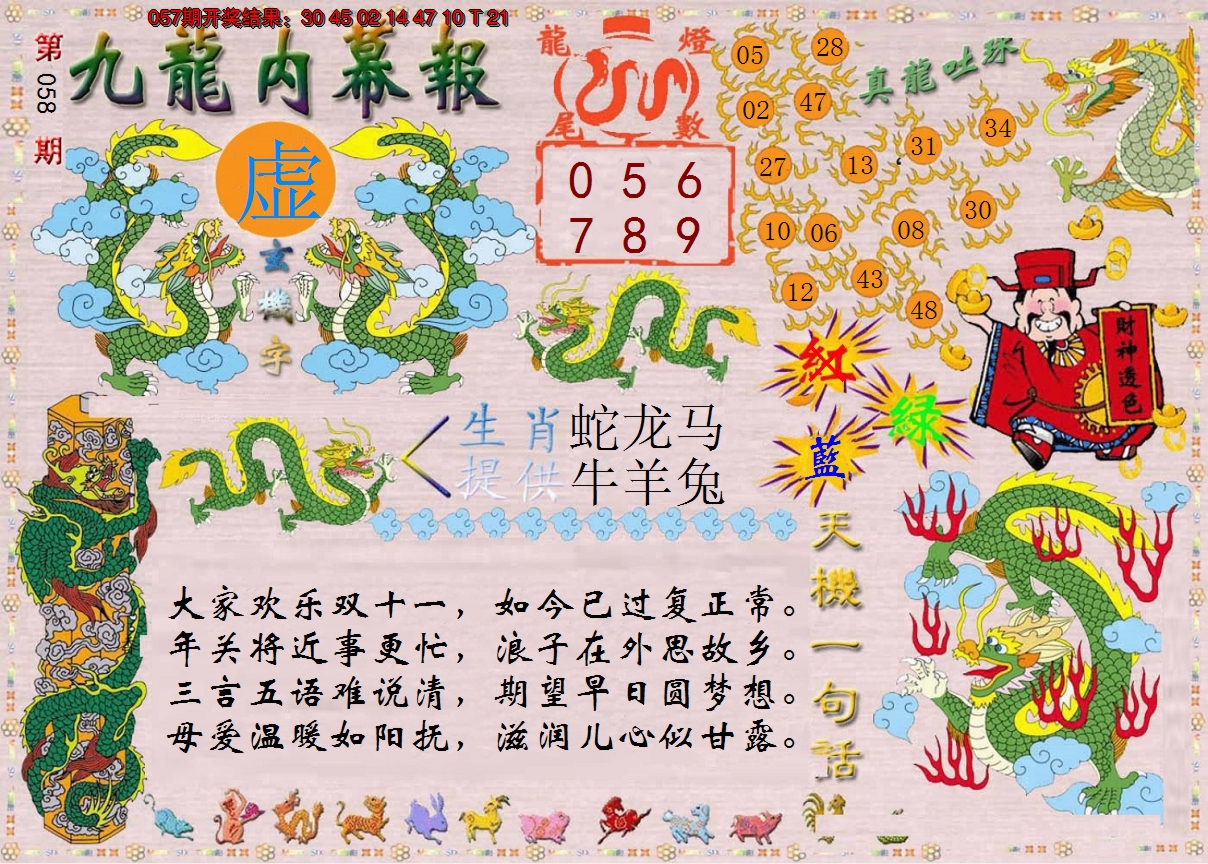 057期开奖结果：30 45 02 14 47 10 T 21
第058期
九龍内幕報
虚
玄機字
龍燈
尾數
0 5 6
7 8 9
真龍吐珠
05 28
02 47
27 13 31 34
10 06 08 30
12 43 48
財神透色
紅
綠
藍
生肖 蛇龙马
提供 牛羊兔
天機一句話
大家欢乐双十一，如今已过复正常。
年关将近事更忙，浪子在外思故乡。
三言五语难说清，期望早日圆梦想。
母爱温暖如阳抚，滋润儿心似甘露。